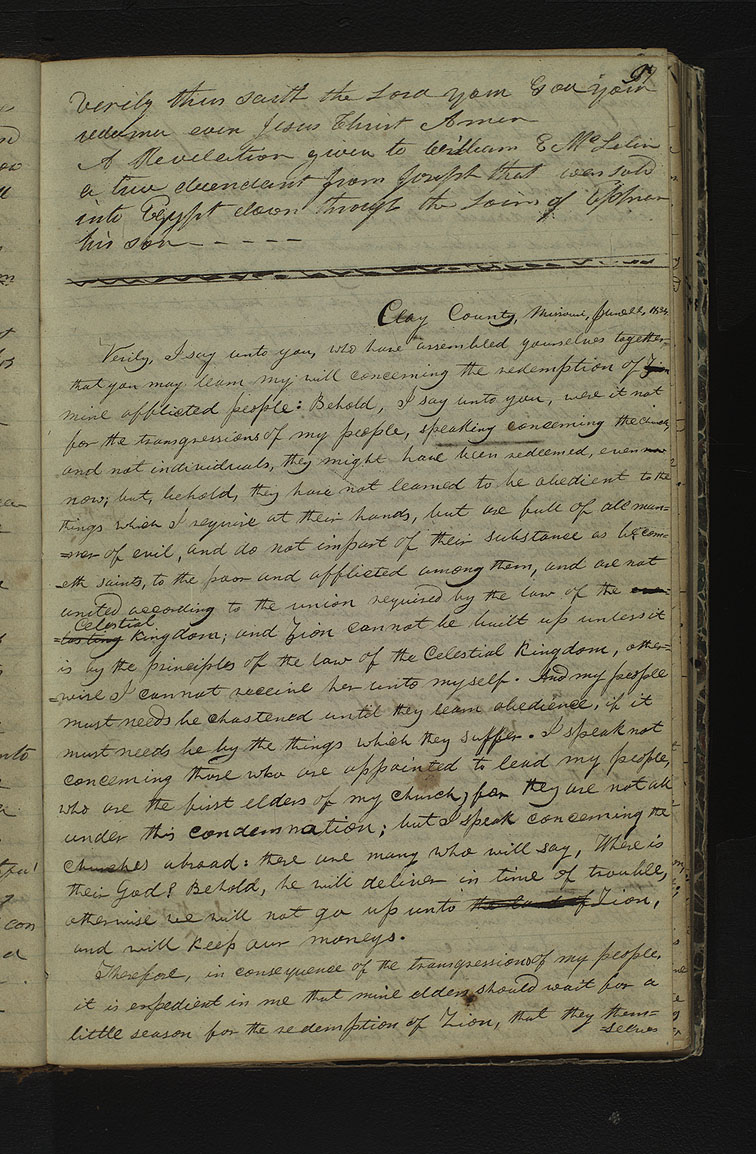 97
Verily thus saith the Lord your God your
redeemer even Jesus Christ Amen
A Revelation given to William E McLelin
a true decendant from Joseph that was sold
into Egypt down through the loins of Ephraim
his son - - - - -
Clay County, Missouri, June 22, 1834.
Verily, I say unto you, who have assembled yourselves together
that you may learn my will concerning the redemption of Zion
mine afflicted people: Behold, I say unto you, were it not
for the transgressions of my people, speaking concerning the church,
and not individuals, they might have been redeemed, even now
now; but, behold, they have not learned to be obedient to the
things which I require at their hands, but are full of all man=
=ner of evil, and do not impart of their substance as becom=
eth saints, to the poor and afflicted among them, and are not
united according to the union required by the law of the ever=
Celestial
=lasting kingdom; and Zion cannot be built up unless it
is by the principles of the law of the Celestial kingdom, other=
=wise I cannot receive her unto myself. And my people
must needs be chastened until they learn obedience, if it
must needs be by the things which they suffer. I speak not
concerning those who are appointed to lead my people,
who are the first elders of my church, for they are not all
under this condemnation; but I speak concerning the
churches abroad: there are many who will say, Where is
their God? Behold, he will deliver in time of trouble,
otherwise we will not go up unto the land of Zion,
and will keep our moneys.
Therefore, in consequence of the transgressions of my people,
it is expedient in me that mine elders should wait for a
little season for the redemption of Zion, that they them=
=selves